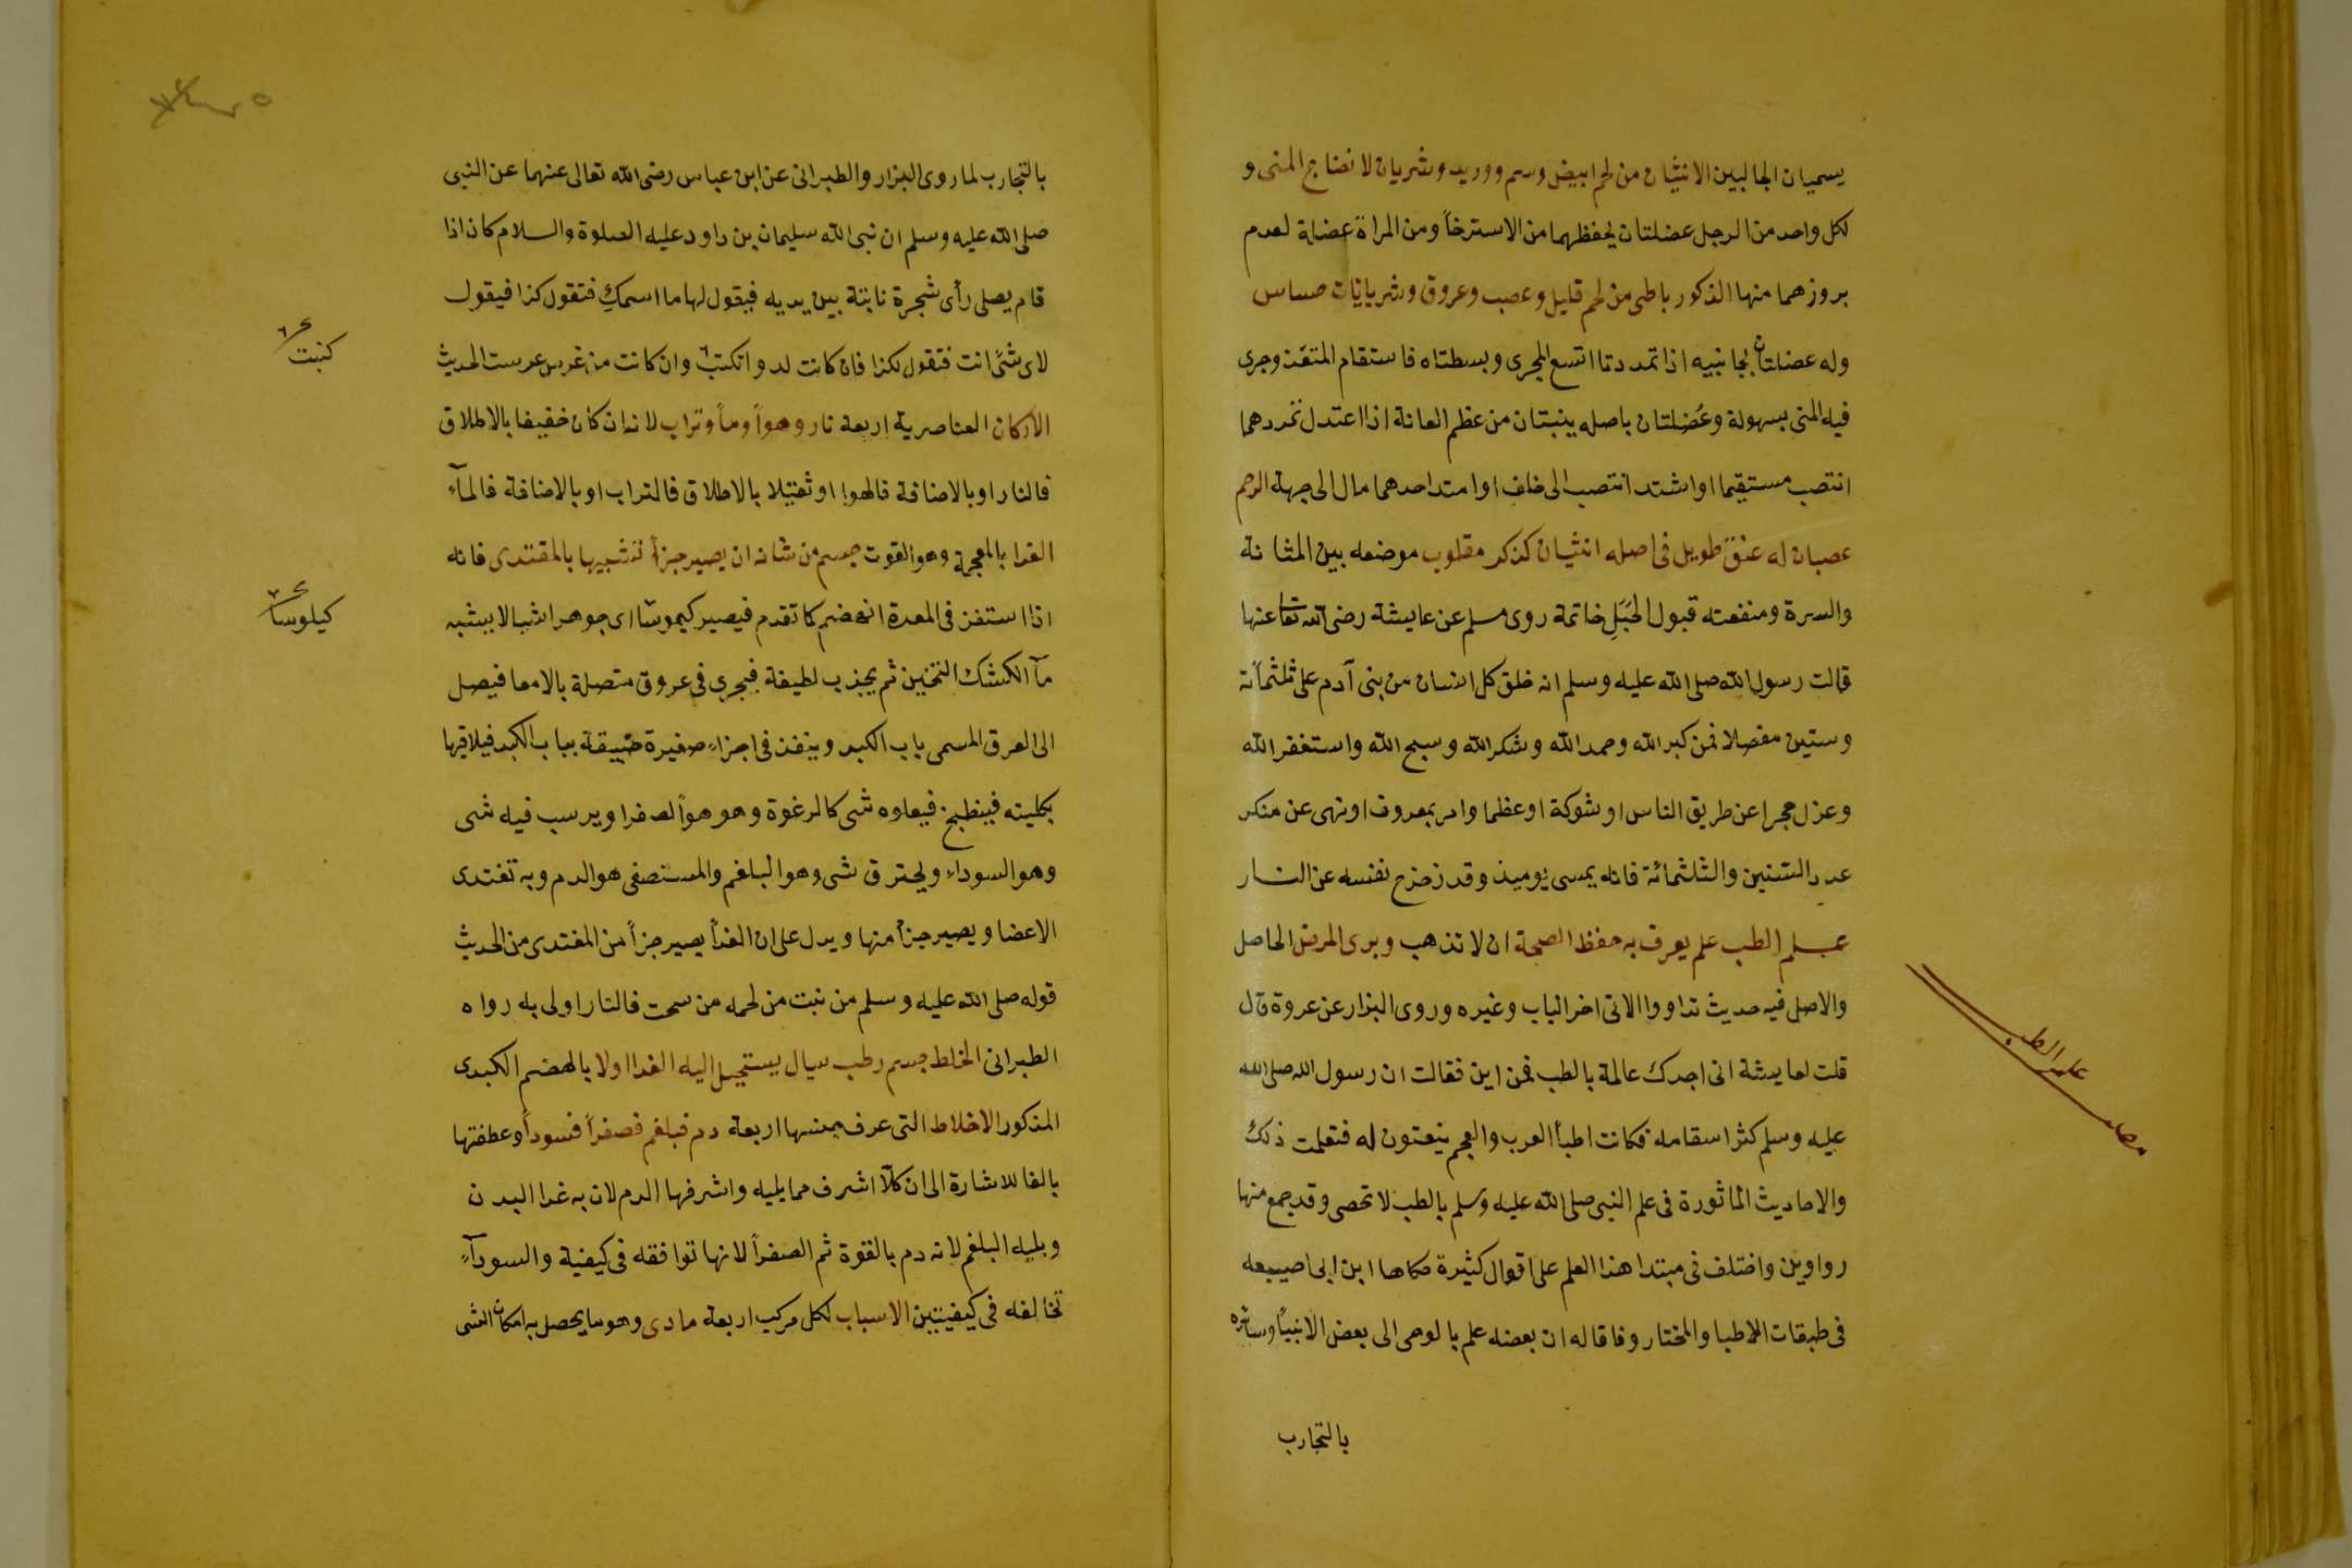 يسميان الجالبين الانثيان من لحم ابيض وسم ووريد وشريان لانضاج المنى و
لكل واحد من الرجل عضلتان يحفظهما من الاسترخأ ومن المراة عضلة لعدم
بروزهما منها الذكور باطى من لحم قليل وعصب وعروق وشريانات حساس
وله عضلتان بجانبيه اذا تمددتا اتسع المجرى وبسطتاه فاستقام المنفذ وجرى
فيه المنى بسهولة وعضلتان باصله ينبتان من عظم العانة اذا اعتدل تمددهما
انتصب مستقيما او اشتد انتصب الى خلف او امتد احدهما مال الى جهة الرحم
عصبان له عنق طويل فى اصله انثيان كذكر مقلوب موضعه بين المثانة
والسرة ومنفعته قبول الحبل خاتمة روى مسلم عن عايشة رضى الله تعا عنها
قالت رسول الله صلى الله عليه وسلم انه خلق كل انسان من بنى آدم على ثلثمأنة
وستين مفصلا فمن كبر الله وحمد الله وشكر الله وسبح الله واستغفر الله
وعزل حجرا عن طريق الناس او شوكة او عظما وامر بمعروف او نهى عن منكر
عدد الستين والثلثمائة فانه يمسى يوميذ وقد زحزح نفسه عن النار
علم الطب علم يعرف به حفظ الصحة ان لا تذهب وبرى المرض الحاصل
والاصل فيه حديث تداووا الاتى اخر الباب وغيره وروى البزار عن عروة قال
قلت لعايشة انى اجدك عالمة بالطب فمن اين فقالت ان رسول الله صلى الله
عليه وسلم كثر اسقامه فكانت اطبأ العرب والعجم ينعتون له فتعلمت ذلك
والاحاديث الماثورة فى علم النبى صلى الله عليه وسلم بالطب لا تحصى وقد جمع منها
رواوين واختلف فى مبتدا هذا العلم على اقوال كثيرة حكاها ابن ابى اصيبعه
فى طبقات الاطبا والمختار وفاقا له ان بعضه علم بالوحى الى بعض الانبيأ وسائره
بالتجارب
علم الطب
بالتجارب لما روى البزار والطبرانى عن ابن عباس رضى الله تعالى عنهما عن النبى
صلى الله عليه وسلم ان نبى الله سليمان بن داود عليه الصلوة والسلام كان اذا
قام يصلى رأى شجرة نابتة بين يديه فيقول لها ما اسمك فتقول كذا فيقول
لاى شئ انت فتقول لكذا فان كانت لدوا تكتب وان كانت من غرس عرست الحديث
كنبت
الاركان العناصرية اربعة نار وهوأ ومأ وتراب لانه ان كان خفيفا بالاطلاق
فالنار او بالاضافة فالهوا او ثقيلا بالاطلاق فالتراب او بالاضافة فالمآء
الغدا بالمعجمة وهو القوت جسم من شانه ان يصير جزأ شبيها بالمقتدى فانه
اذا استفن فى المعدة انهضم كما تقدم فيصير كيموسا اى جوهر اشبالا يشبه
كيلوسا
مآ الكشك الثخين ثم يجذب لطيفة فيجرى فى عروق متصلة بالامعا فيصل
الى العرق المسمى باب الكبد وينفذ فى اجزاء صغيرة ضيقة بباب الكبد فيلاقيها
بكليته فينطبخ فيعلوه شى كالرغوة وهو هوأ الصفرا ويرسب فيه شى
وهو السوداء ويحترق شى وهو البلغم والمستصفى هو الدم وبه تغتدى
الاعضا ويصير جزأ منها ويدل على ان الغدأ يصير جزأ من المغتدى من الحديث
قوله صلى الله عليه وسلم من نبت من لحمه من سحت فالنار اولى به رواه
الطبرانى الخلط جسم رطب سيال يستحيل اليه الغدا اولا بالهضم الكبدى
المذكور الاخلاط التى عرف جنسها اربعة دم فبلغم فصفرأ فسودأ وعطفتها
بالفا للاشارة الى ان كلآ اشرف مما يليه واشرفها الدم لان به غدا البدن
ويليه البلغم لانه دم بالقوة ثم الصفرأ لانها توافقه فى كيفية والسودآء
تخالفه فى كيفيتين الاسباب لكل مركب اربعة مادى وهو ما يحصل به امكان الشى